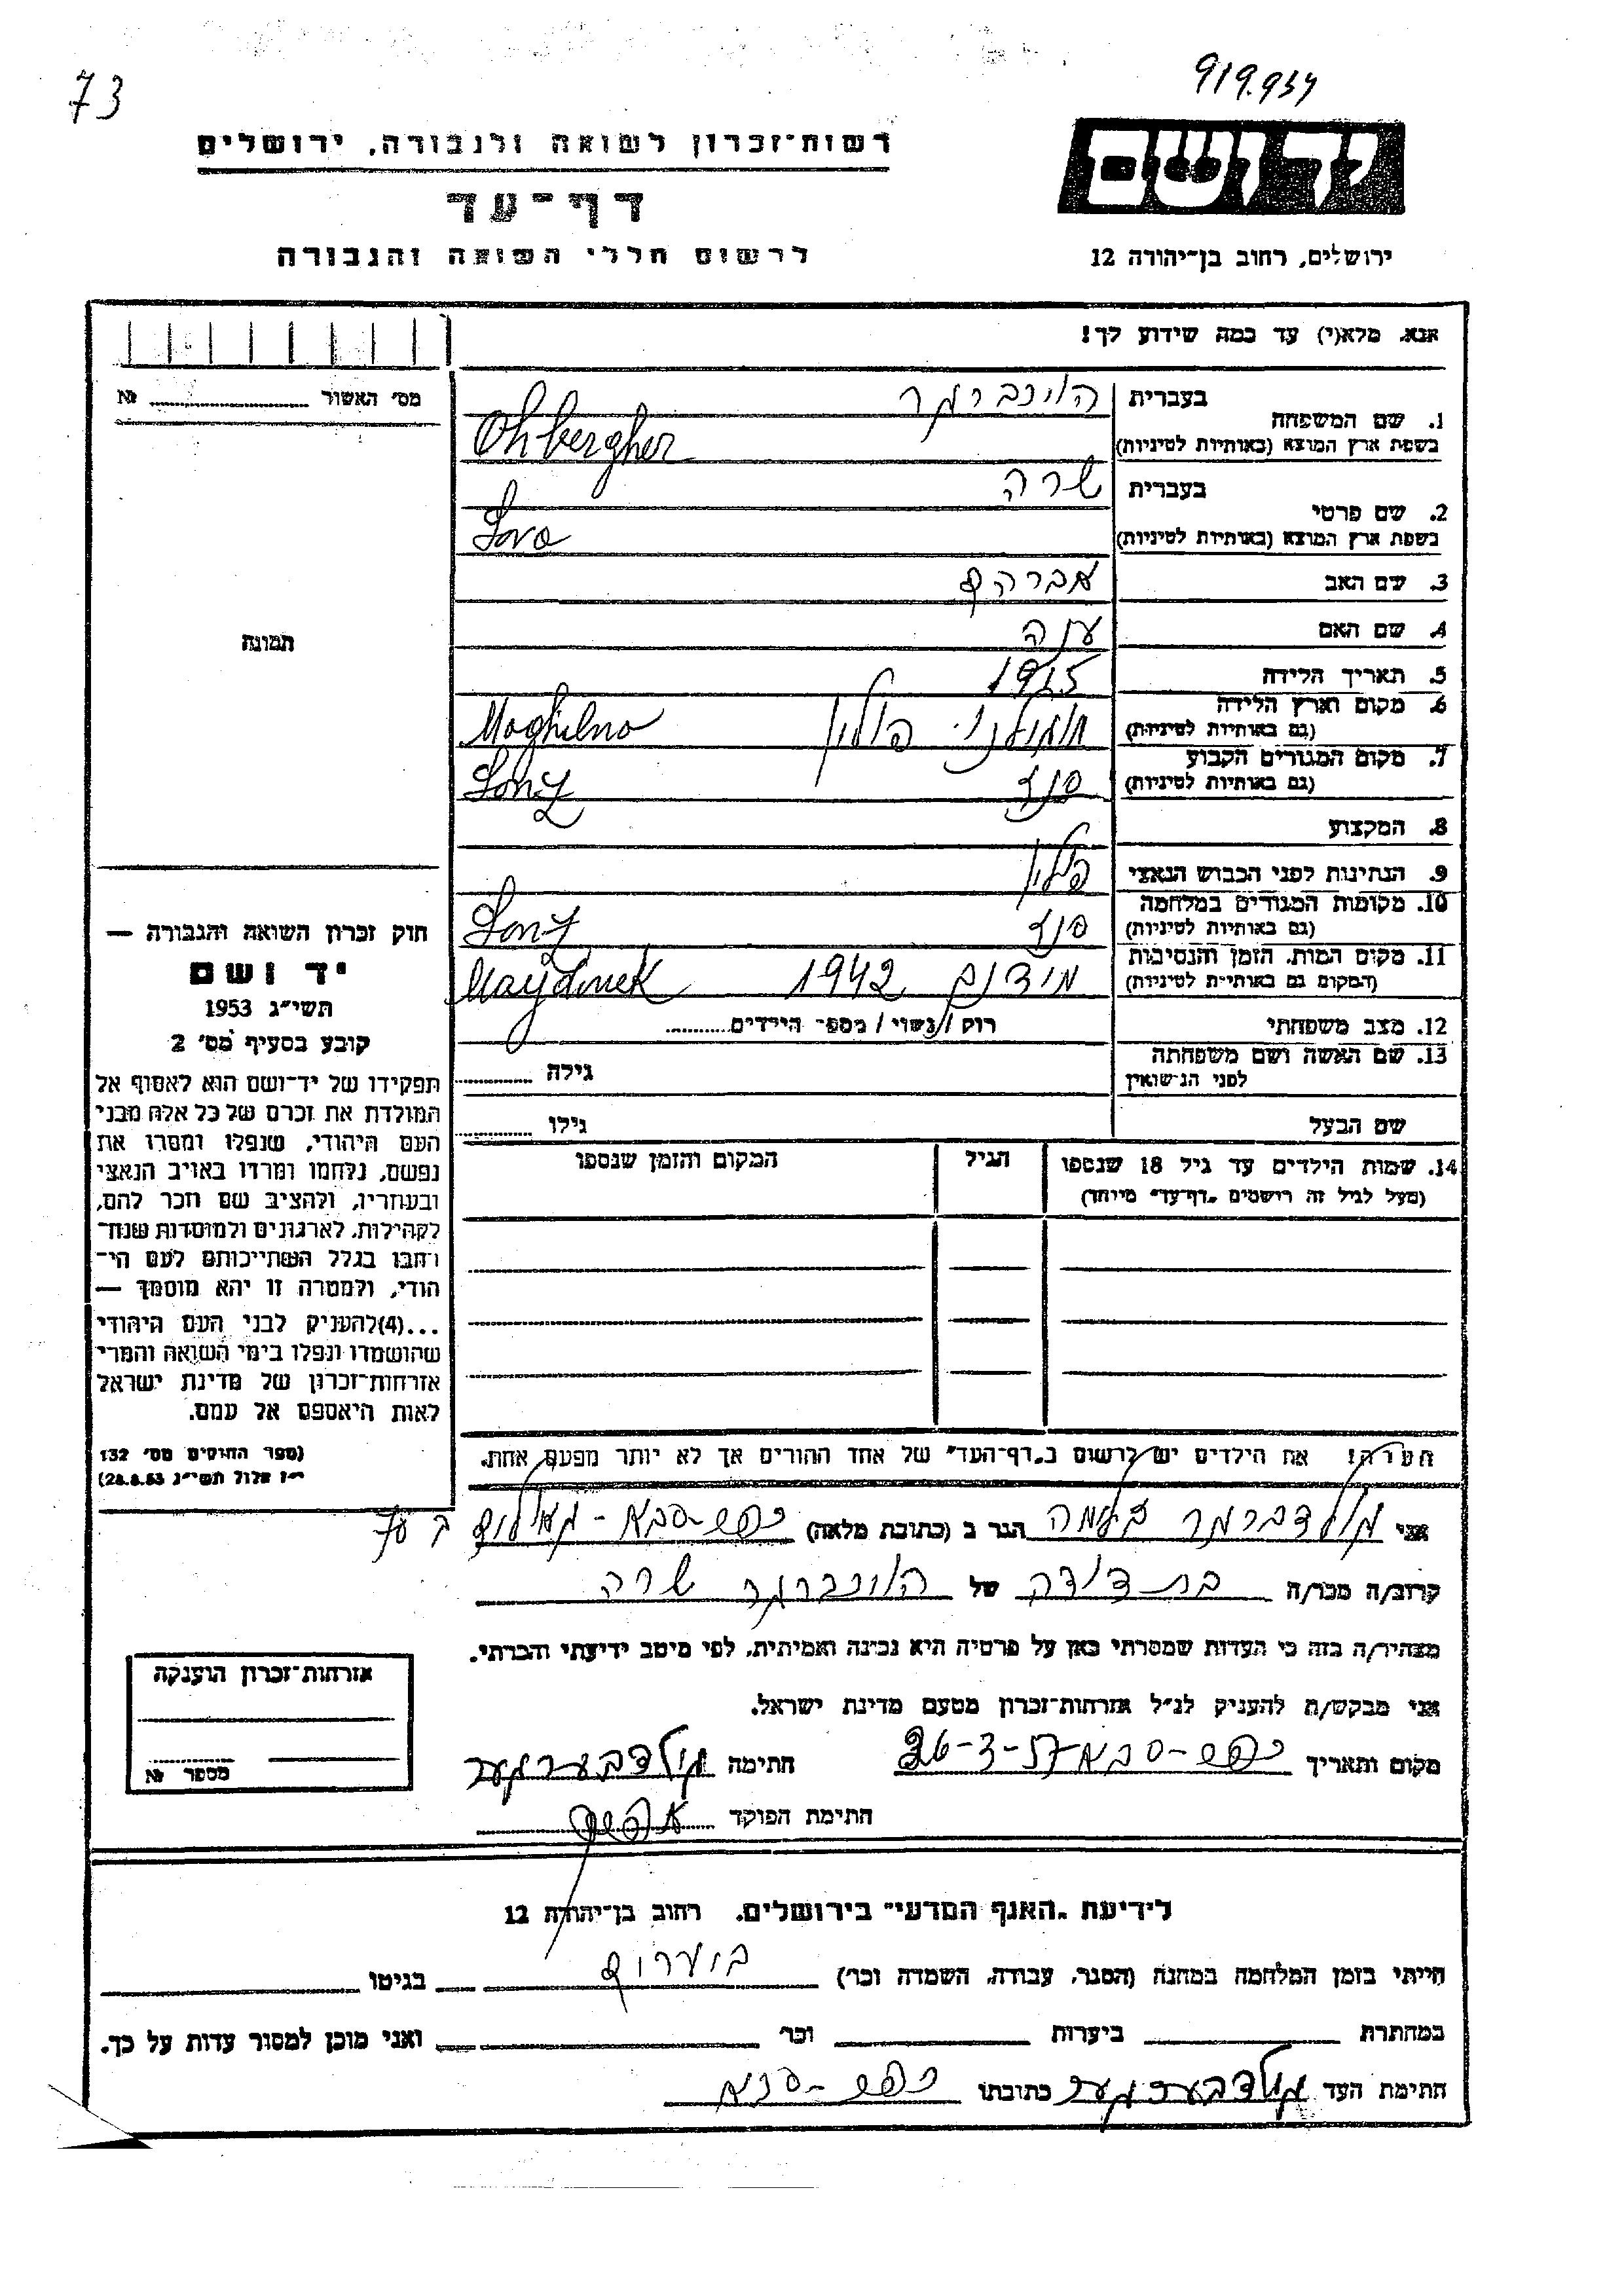 73
919.934
רשות־זכרון לשואה ולגבורה, ירושלים
יד ושם
דף־עד
לרשום חללי השואה והגבורה
ירושלים, רחוב בן־יהודה 12
אנא, מלא(י) עד כמה שידוע לך!
מס' האשור № 
1. שם המשפחה בעברית
בשפת ארץ המוצא (באותיות לטיניות) Ohbergher
2. שם פרטי בעברית שרה
בשפת ארץ המוצא (באותיות לטיניות) Sara
3. שם האב אברהם
4. שם האם
5. תאריך הלידה 1915
6. מקום וארץ הלידה פולין
(גם באותיות לטיניות) Moghilno
7. מקום המגורים הקבוע
(גם באותיות לטיניות)
8. המקצוע
9. הנתינות לפני הכבוש הנאצי פולין
10. מקומות המגורים במלחמה
(גם באותיות לטיניות)
11. מקום המות, הזמן והנסיבות 1942
(המקום גם באותיות לטיניות) Maydanek
12. מצב משפחתי רווק / נשוי / מספר הילדים
13. שם האשה ושם משפחתה גילה
לפני הנישואין
שם הבעל גילו
14. שמות הילדים עד גיל 18 שנספו הגיל המקום והזמן שנספו
(מעל לגיל זה רושמים "דף־עד" מיוחד)
תמונה
חוק זכרון השואה והגבורה —
יד ושם
תשי״ג 1953
קובע בסעיף מס' 2
תפקידו של יד־ושם הוא לאסוף אל
המולדת את זכרם של כל אלה מבני
העם היהודי, שנפלו ומסרו את
נפשם, נלחמו ומרדו באויב הנאצי
ובעוזריו, ולהציב שם וזכר להם,
לקהילות, לארגונים ולמוסדות שנח־
רבו בגלל השתייכותם לעם הי־
הודי, ולמטרה זו יהא מוסמך —
...(4)להעניק לבני העם היהודי
שהושמדו ונפלו בימי השואה והמרי
אזרחות־זכרון של מדינת ישראל
לאות היאספם אל עמם.
(ספר החוקים מס' 132
י״ז אלול תשי״ג 28.8.53)
הערה! את הילדים יש לרשום ב"דף־העד" של אחד ההורים אך לא יותר מפעם אחת.
אני גולדברגר הגר ב (כתובת מלאה) כפר־סבא
קרוב/ה מכר/ה בת דודה של שרה
מצהיר/ה בזה כי העדות שמסרתי כאן על פרטיה היא נכונה ואמיתית, לפי מיטב ידיעתי והכרתי.
אני מבקש/ת להעניק לנ״ל אזרחות־זכרון מטעם מדינת ישראל.
מקום ותאריך כפר־סבא 26-3-57 חתימה גולדבערגער
חתימת הפוקד
אזרחות־זכרון הוענקה
מספר №
לידיעת "האגף המדעי" בירושלים, רחוב בן־יהודה 12
הייתי בזמן המלחמה במחנה (הסגר, עבודה, השמדה וכו') בגיטו
במחתרת ביערות וכו' ואני מוכן למסור עדות על כך.
חתימת העד גולדבערגער כתובתו כפר־סבא